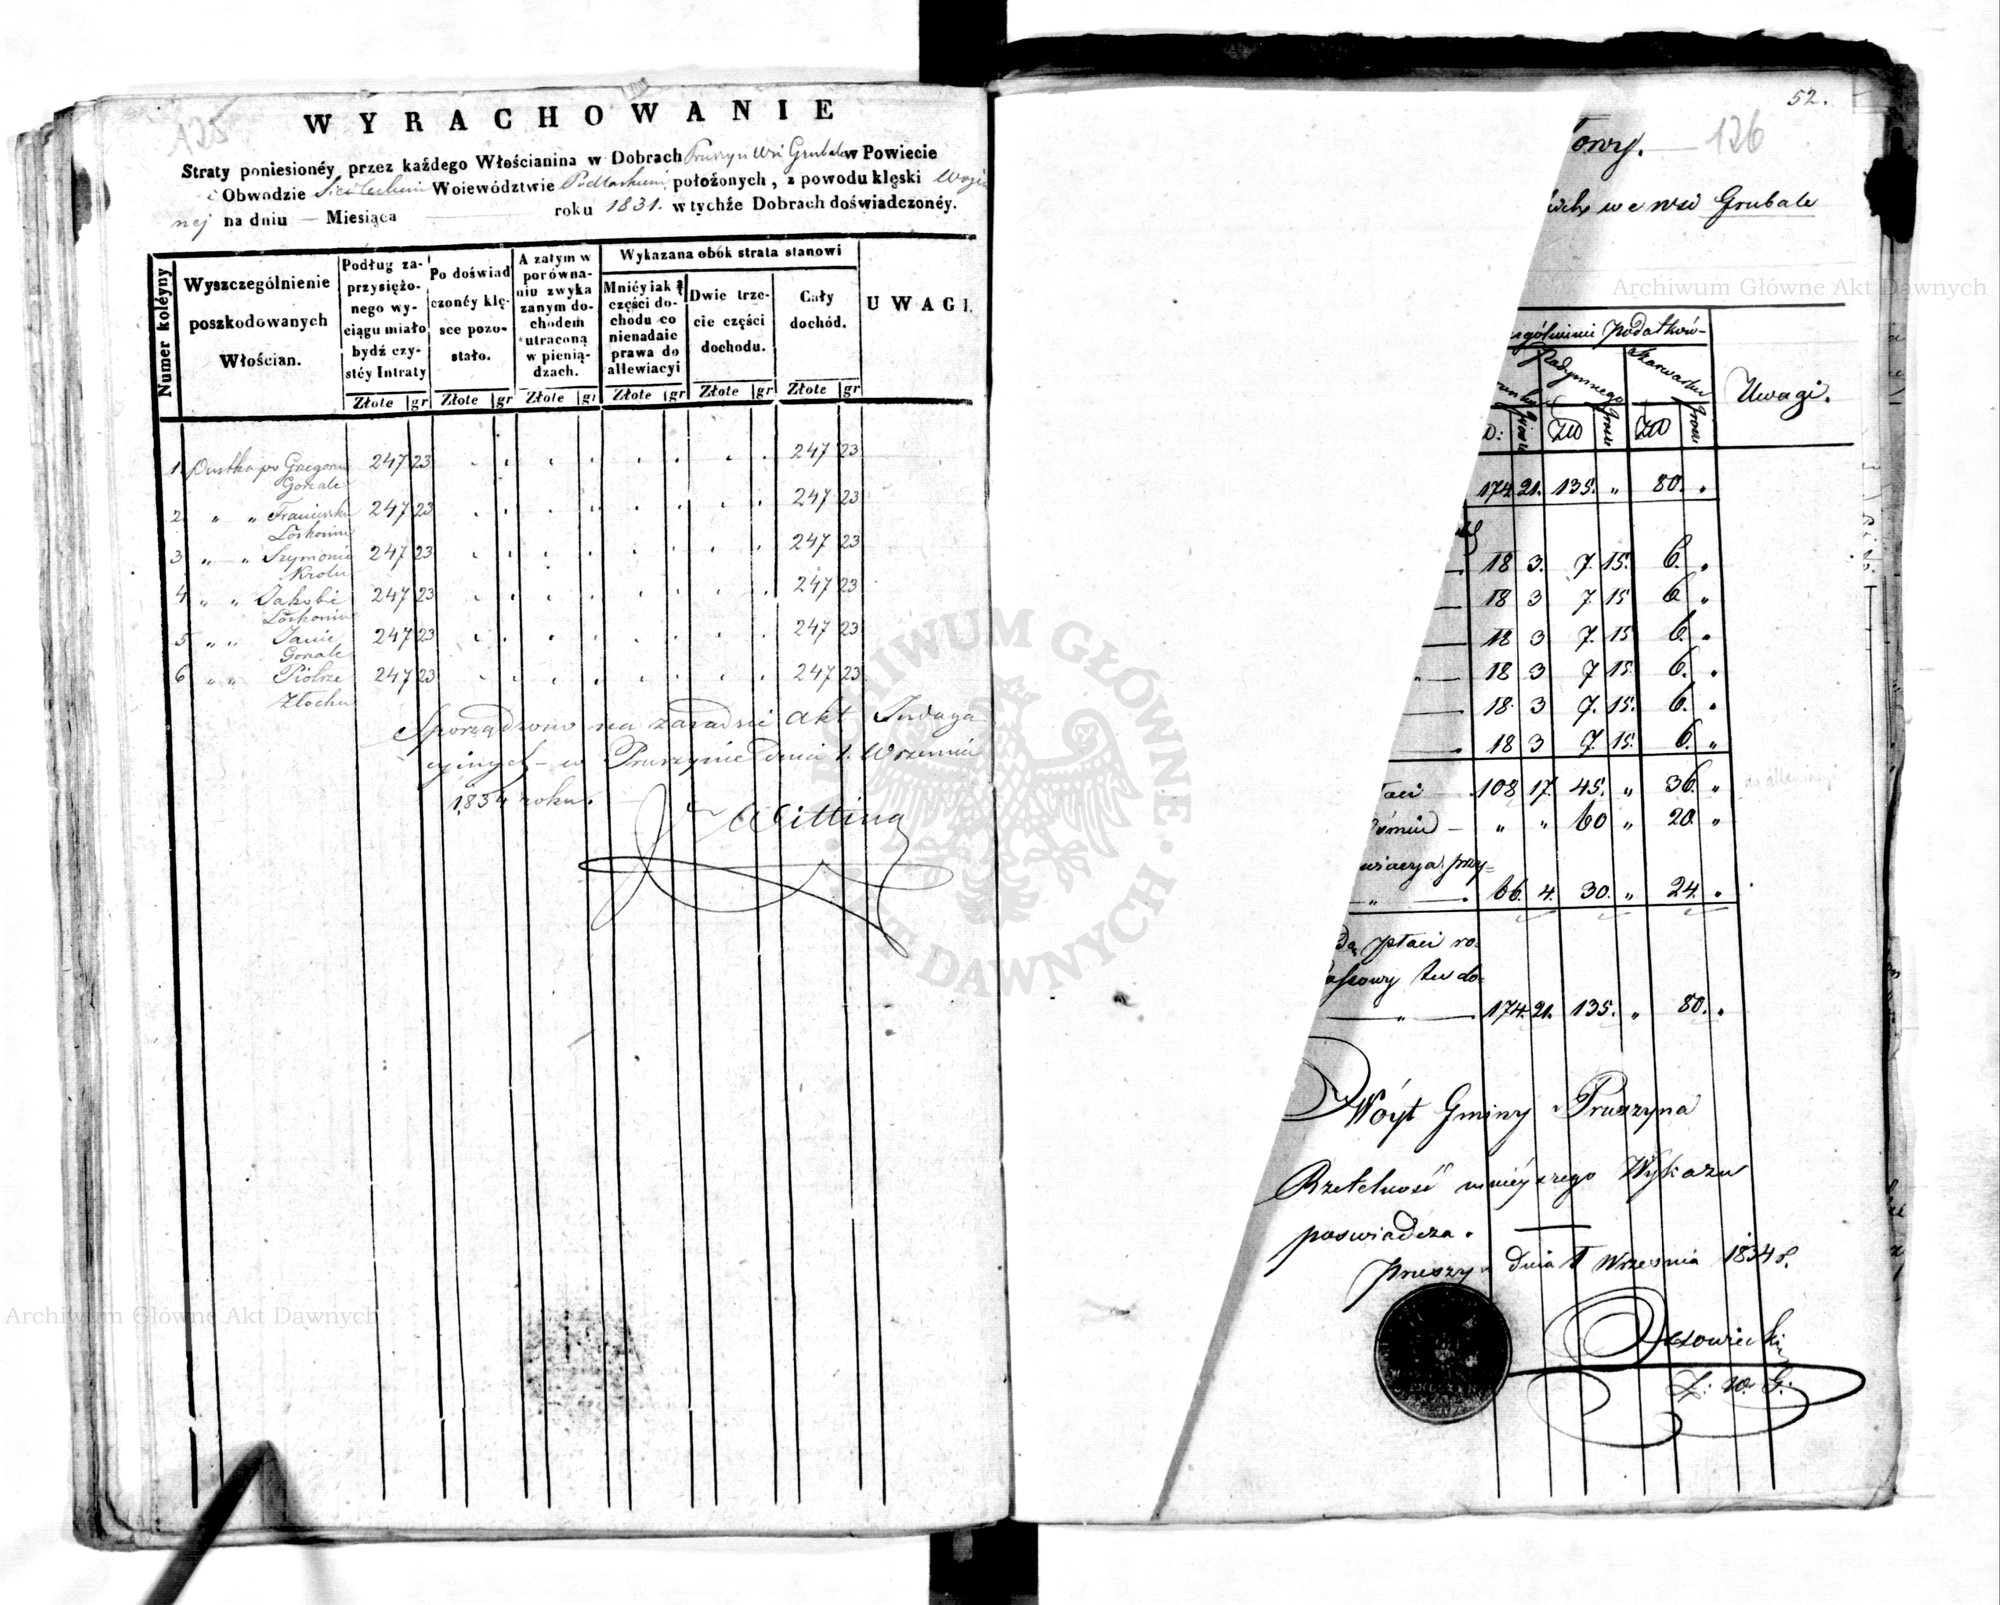 125
WYRACHOWANIE
Straty poniesionéy przez każdego Włościanina w Dobrach Pruszyn Wsi Grubale w Powiecie
i Obwodzie Siedleckim Woiewództwie Podlaskiem położonych, z powodu klęski Wojen
nej na dniu — Miesiąca roku 1831. w tychże Dobrach doświadczonéy.
Numer koléyny
Wyszczególnienie poszkodowanych Włościan.
Podług zaprzysiężonego wyciągu miało bydź czystéy Intraty
Po doświadczonéy klęsce pozostało.
A zatym w porównaniu zwykazanym dochodem utraconą w pieniądzach.
Wykazana obók strata stanowi
Mniéy iak ⅔ części dochodu co nienadaie prawa do allewiacyi
Dwie trzecie części dochodu.
Cały dochód.
UWAGI.
Złote gr Złote gr Złote gr Złote gr Złote gr Złote gr
1. Pustka po Grzegorzu 247 23 247 23
Gorzale
2. " " Franciszku 247 23 247 23
3 " " Szymonie 247 23 247 23
Krolu
4 " " Jakobie 247 23 247 23
5 " " Janie 247 23 247 23
Gorzale
6 " " Piotrze 247 23 247 23
Złochu
Sporządzono na zasadzie akt Indaga
cyinych w Pruszynie dnia 1. Wrzesnia
1834 roku.
Witting
52.
126
towy.
we wsi Grubale
gólnieni Podatków
Podymnego
Szarwarku
Uwagi.
Grosze Złp Grosze Złp Grosze
174. 21. 135. " 80. "
18 3. 7. 15. 6. "
18 3 7. 15 6 "
18 3 7. 15 6. "
18 3 7 15. 6. "
18. 3 7. 15. 6. "
18 3 7. 15. 6. "
108 17. 45. " 36. "
" " 60 " 20. "
wiacya przy=
66. 4. 30. " 24. "
płaci ro-
do-
174. 21. 135. " 80. "
Wóyt Gminy Pruszyna
Rzetelność ninieyszego Wykazu
poswiadcza.
Pruszyn dnia 1 Wrzesnia 1834 r.
Z. W. G.
Archiwum Główne Akt Dawnych
Archiwum Główne Akt Dawnych
ARCHIWUM GŁÓWNE AKT DAWNYCH